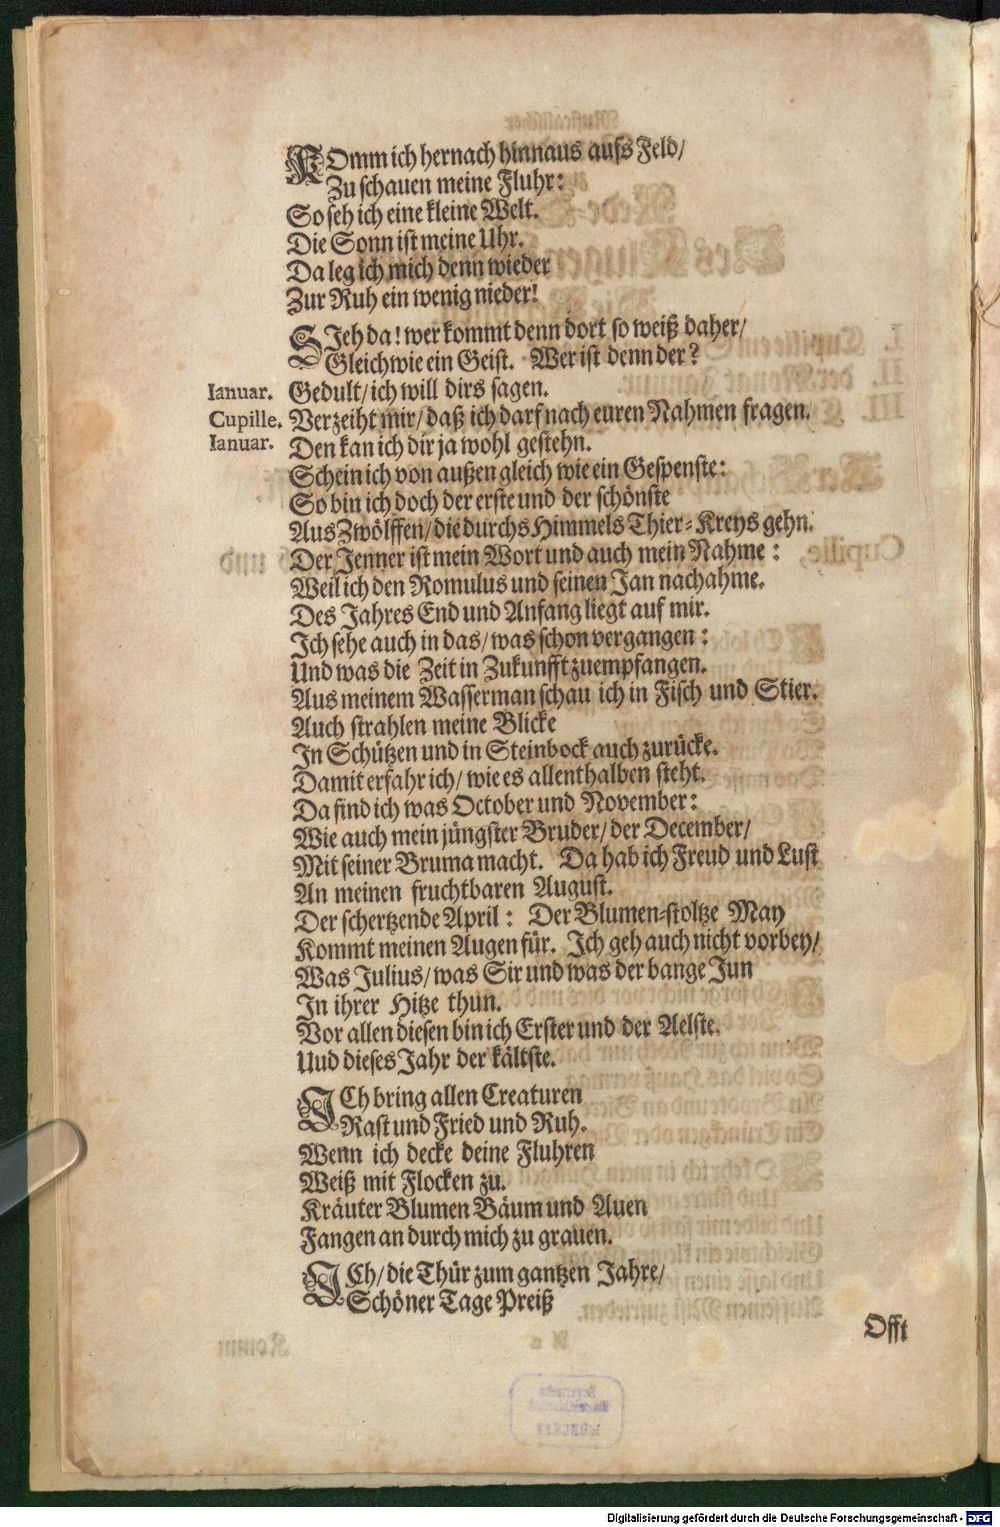 KOmm ich hernach hinnaus aufs Feld/
Zu schauen meine Fluhr:
So seh ich eine kleine Welt.
Die Sonn ist meine Uhr.
Da leg ich mich denn wieder
Zur Ruh ein wenig nieder!
SJeh da! wer kommt denn dort so weiß daher/
Gleich wie ein Geist. Wer ist denn der?
Ianuar. Gedult/ ich will dirs sagen.
Cupille. Verzeiht mir/ daß ich darf nach euren Nahmen fragen.
Ianuar. Den kan ich dir ja wohl gestehn.
Schein ich von außen gleich wie ein Gespenste:
So bin ich doch der erste und der schönste
Aus Zwölffen/ die durchs Himmels Thier-Kreys gehn.
Der Jenner ist mein Wort und auch mein Nahme:
Weil ich den Romulus und seinen Jan nachahme.
Des Jahres End und Anfang liegt auf mir.
Ich sehe auch in das/ was schon vergangen:
Und was die Zeit in Zukunfft zuempfangen.
Aus meinem Wasserman schau ich in Fisch und Stier.
Auch strahlen meine Blicke
In Schützen und in Steinbock auch zurücke.
Damit erfahr ich/ wie es allenthalben steht.
Da find ich was October und November:
Wie auch mein jüngster Bruder/ der December/
Mit seiner Bruma macht. Da hab ich Freud und Lust
An meinen fruchtbaren August.
Der schertzende April: Der Blumen-stoltze May
Kommt meinen Augen für. Ich geh auch nicht vorbey/
Was Julius/ was Sir und was der bange Jun
In ihrer Hitze thun.
Vor allen diesen bin ich Erster und der Aelste.
Uud dieses Jahr der kältste.
ICh bring allen Creaturen
Rast und Fried und Ruh.
Wenn ich decke deine Fluhren
Weiß mit Flocken zu.
Kräuter Blumen Bäum und Auen
Fangen an durch mich zu grauen.
ICh/ die Thür zum gantzen Jahre/
Schöner Tage Preiß
Offt
Digitalisierung gefördert durch die Deutsche Forschungsgemeinschaft - DFG